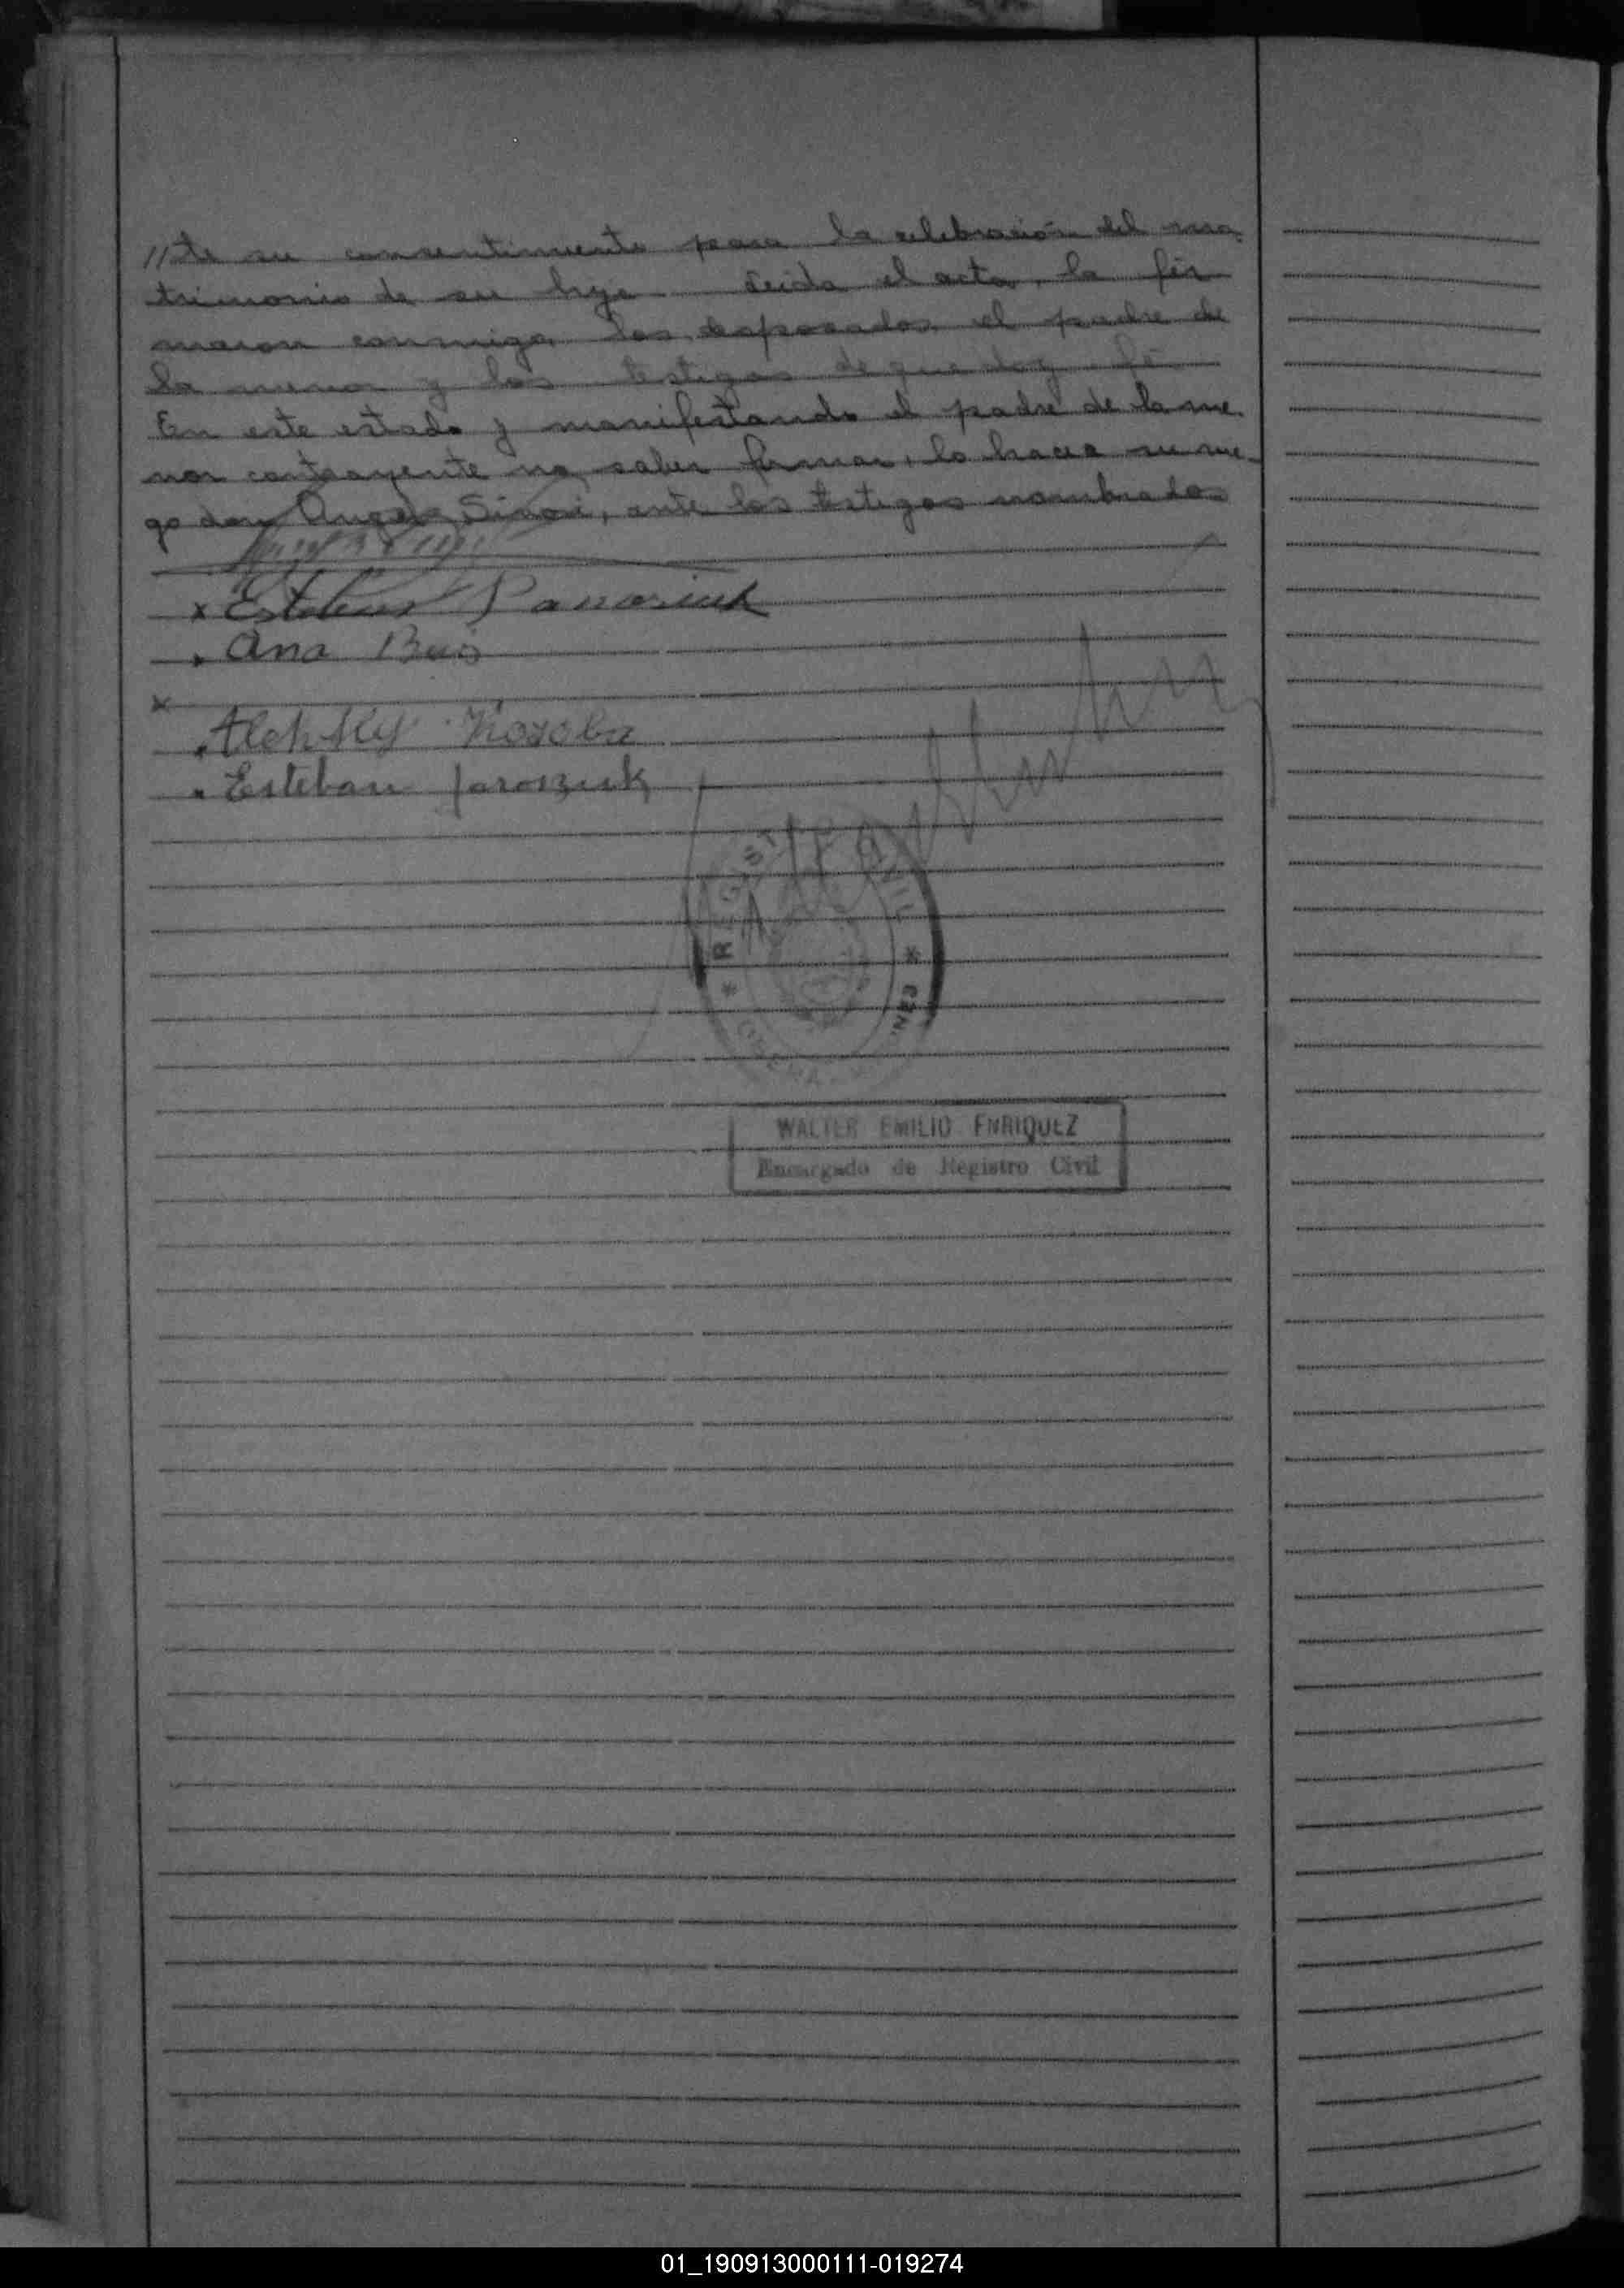 //te su consentimiento para la celebración del ma-
trimonio de su hija Leida el acta, la fir
maron conmigo, los desposados, el padre de
la menor y los testigos de que doy fé
En este estado y manifestando el padre de la me-
nor contrayente no saber firmar, lo hace a su rue-
go don Angel, ante los testigos nombrados
x Esteban Panasiuk
Ana
x
Esteban Jaroszuk
REGISTRO CIVIL
WALTER EMILIO ENRIQUEZ
Encargado de Registro Civil
01_190913000111-019274